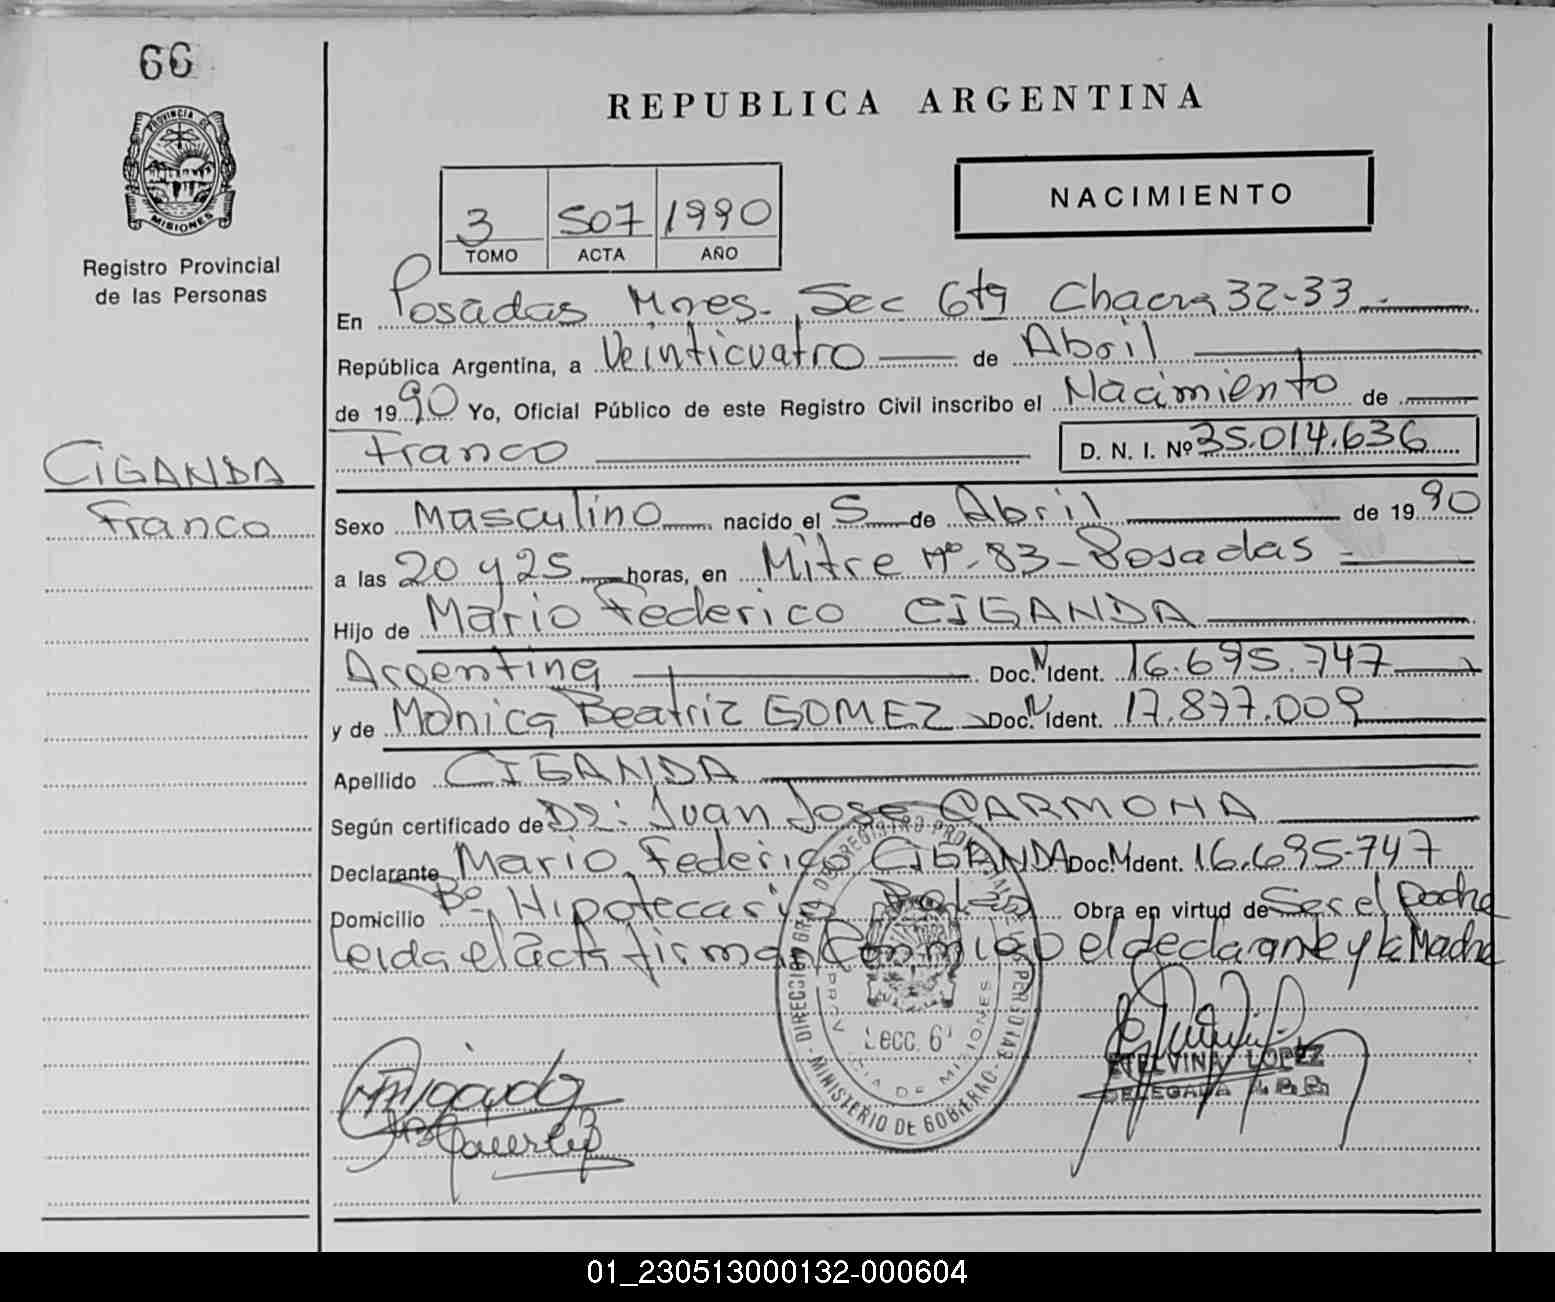 66
PROVINCIA DE
MISIONES
Registro Provincial
de las Personas
CIGANDA
Franco
REPUBLICA ARGENTINA
3 507 1990
TOMO ACTA AÑO
NACIMIENTO
En Posadas Mnes. Sec 6ta Chacra 32-33
República Argentina, a Veinticuatro de Abril
de 1990 Yo, Oficial Público de este Registro Civil inscribo el Nacimiento de
Franco D. N. I. Nº 35.014.636
Sexo Masculino nacido el 5 de Abril de 1990
a las 20 y 25 horas, en Mitre Nº 83-Posadas
Hijo de Mario Federico CIGANDA
Argentina Doc. N Ident. 16.695.747
y de Monica Beatriz GOMEZ Doc. N Ident. 17.877.009
Apellido CIGANDA
Según certificado de Dr: Juan Jose CARMONA
Declarante Mario Federico CIGANDA Doc. N Ident. 16.695.747
Domicilio Bº Hipotecario Obra en virtud de Ser el padre
leida el acta firman Conmigo el declarante y la Madre
DIRECCION GRAL DEL REGISTRO PROVINCIAL DE LAS PERSONAS
PROVINCIA DE MISIONES
Secc. 6
MINISTERIO DE GOBIERNO
ETELVINA LOPEZ
DELEGADA
01_230513000132-000604